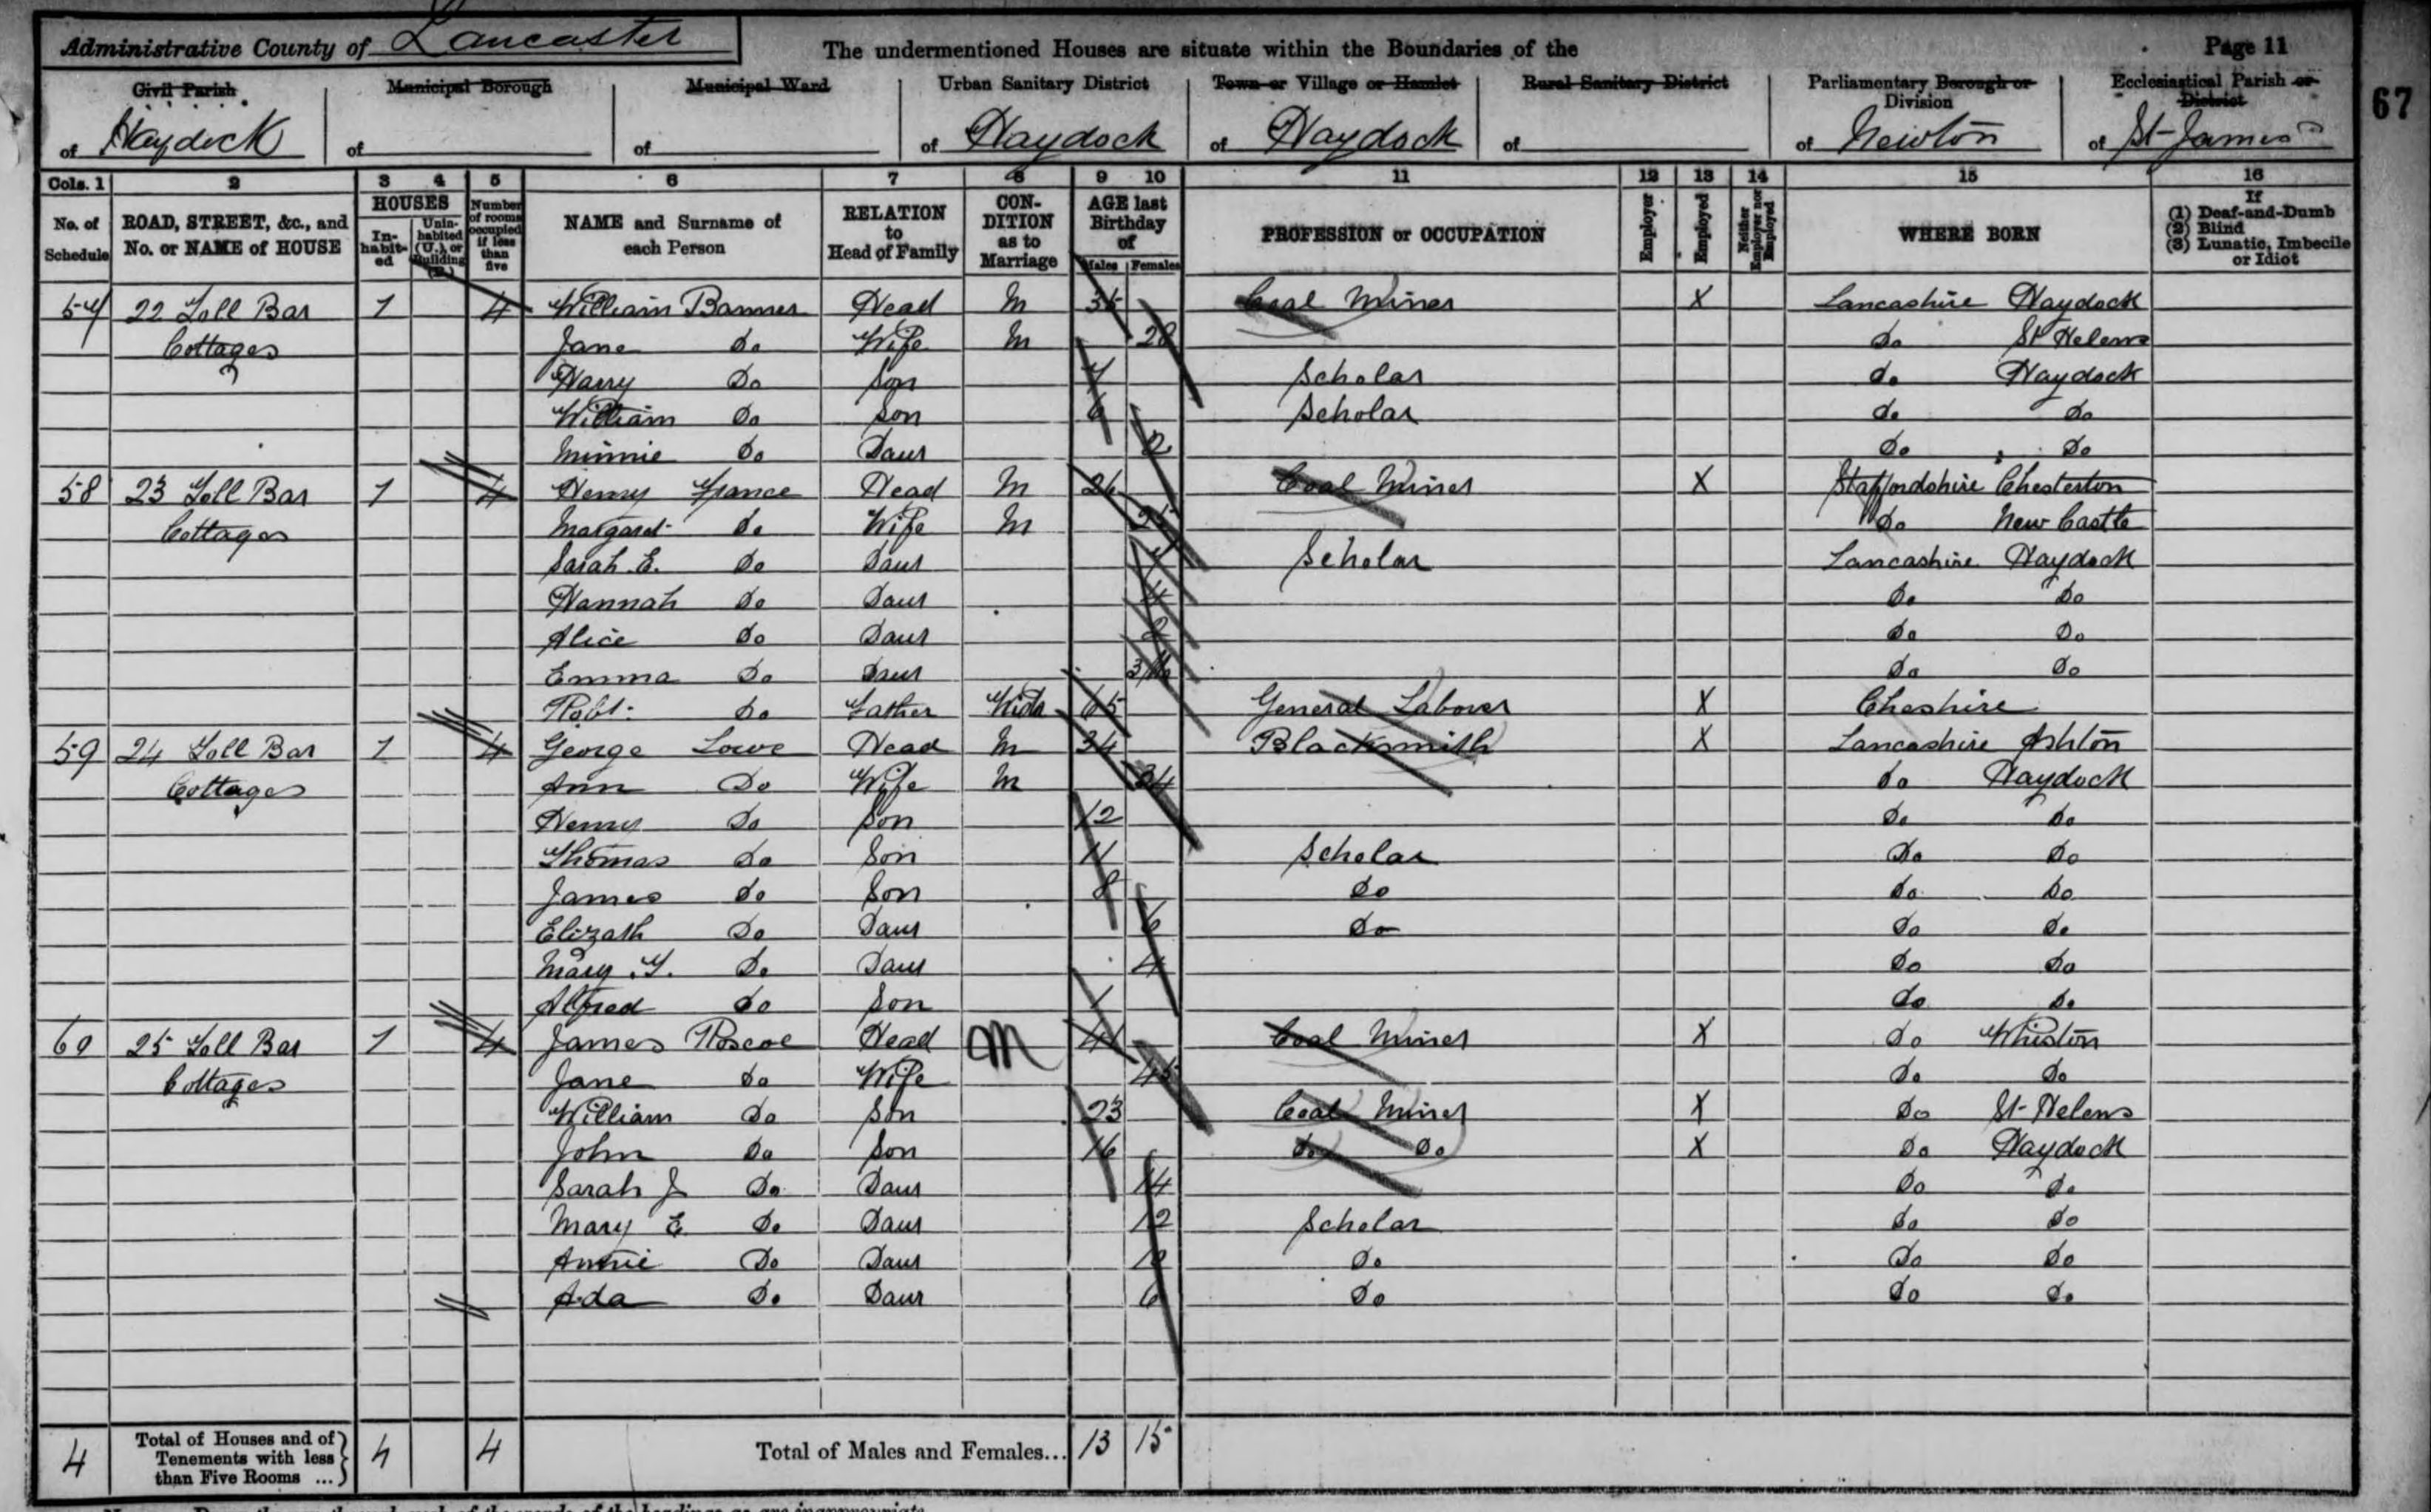 Administrative County of Lancaster The undermentioned Houses are situate within the Boundaries of the Page 11
Civil Parish Municipal Borough Municipal Ward Urban Sanitary District Town or Village or Hamlet Rural Sanitary District Parliamentary Borough or Division Ecclesiastical Parish or District
67
of Haydock of of of Haydock of Haydock of of Newton of St James
Cols. 1 2 3 4 5 6 7 8 9 10 11 12 13 14 15 16
No. of Schedule ROAD, STREET, &c., and No. or NAME of HOUSE HOUSES Inhabited Uninhabited (U.), or Building (B.) Number of rooms occupied if less than five NAME and Surname of each Person RELATION to Head of Family CONDITION as to Marriage AGE last Birthday of Males Females PROFESSION or OCCUPATION Employer Employed Neither Employer nor Employed WHERE BORN If (1) Deaf-and-Dumb (2) Blind (3) Lunatic, Imbecile or Idiot
57 22 Toll Bar 1 4 William Banner Head M 35 Coal Miner X Lancashire Haydock
Cottages Jane Do Wife M 28 do St Helens
Harry Do Son 7 Scholar do Haydock
William Do Son 6 Scholar do do
Minnie Do Daur 2 Do Do
58 23 Toll Bar 1 4 Henry France Head M 26 Coal Miner X Staffordshire Chesterton
Cottages Margaret do Wife M 25 Do New Castle
Sarah E. Do Daur Scholar Lancashire Haydock
Hannah Do Daur 4 Do Do
Alice Do Daur 2 Do Do
Emma Do Daur Do Do
Robt: Do Father Widr 65 General Laborer X Cheshire
59 24 Toll Bar 1 4 George Lowe Head M 34 Blacksmith X Lancashire Ashton
Cottages Ann Do Wife M 34 do Haydock
Henry Do Son 12 Do Do
Thomas do Son 11 Scholar Do Do
James do Son 8 do do Do
Elizath Do Daur 6 do Do do
Mary Do Daur 4 Do Do
Alfred do Son 1 do Do
60 25 Toll Bar 1 4 James Roscoe Head M Coal Miner X do Whiston
Cottages Jane do Wife 45 Do Do
William Do Son 23 Coal Miner X Do St Helens
John Do Son 16 Do Do X Do Haydock
Sarah J Do Daur 14 Do Do
Mary E Do Daur 12 Scholar Do Do
Annie Do Daur 10 Do Do Do
Ada Do Daur 6 Do Do Do
4 Total of Houses and of Tenements with less than Five Rooms ... 4 4 Total of Males and Females... 13 15